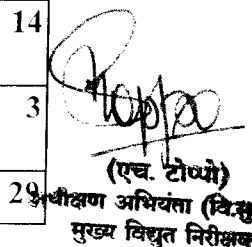 14
3
29
(एच. टोप्पो)
अधीक्षण अभियंता (वि.सु
मुख्य विद्युत निरीक्षक